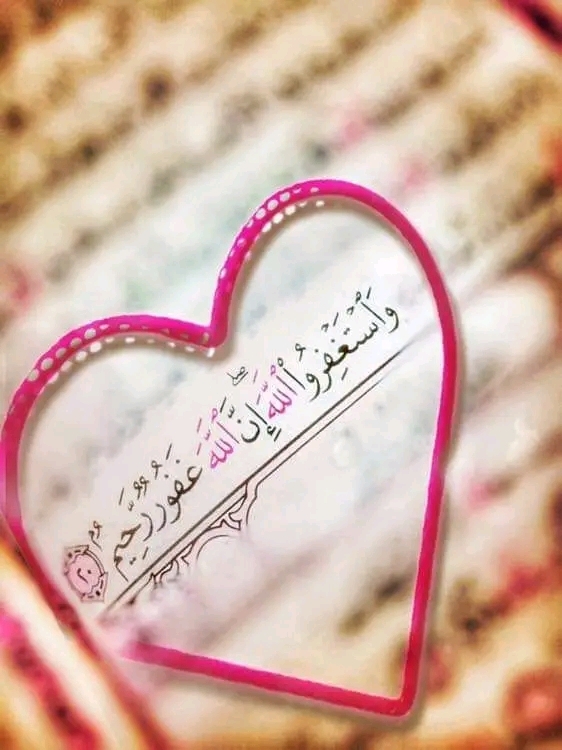 وَٱسْتَغْفِرُوا۟ ٱللَّهَ ۖ إِنَّ ٱللَّهَ غَفُورٌ رَّحِيمٌۢ ٢٠